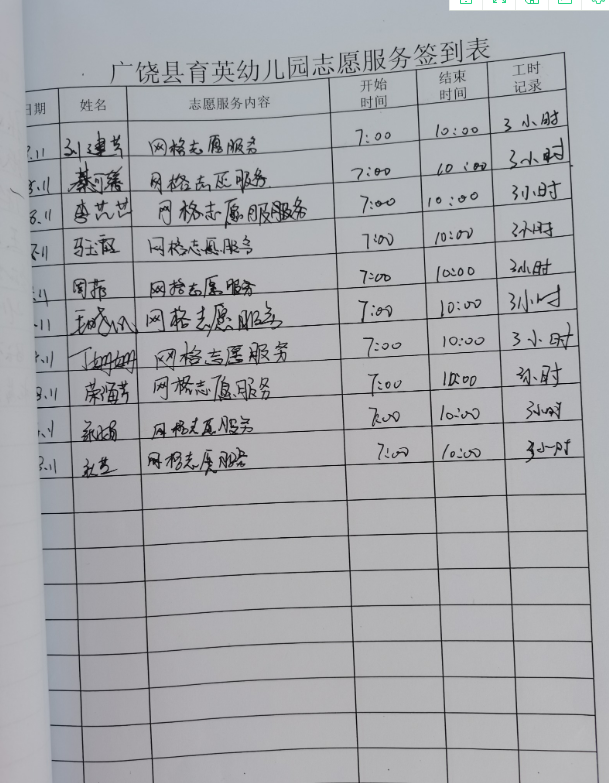 广饶县育英幼儿园志愿服务签到表
日期 姓名 志愿服务内容 开始时间 结束时间 工时记录
.11 刘建芳 网格志愿服务 7:00 10:00 3小时
.11 网格志愿服务 7:00 10:00 3小时
8.11 李芸芸 网格志愿服服务 7:00 10:00 3小时
.11 网格志愿服务 7:00 10:00 3小时
.11 周菲 网格志愿服务 7:00 10:00 3小时
.11 网格志愿服务 7:00 10:00 3小时
.11 丁姗姗 网格志愿服务 7:00 10:00 3小时
8.11 荣海芳 网格志愿服务 7:00 10:00 3小时
.11 网格志愿服务 7:00 10:00 3小时
8.11 网格志愿服务 7:00 10:00 3小时